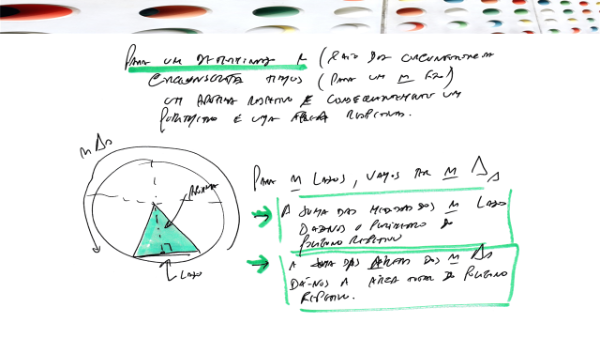 PARA UM DETERMINADO r (RAIO DA CIRCUNFERÊNCIA
CIRCUNSCRITA TEMOS (PARA UM n FIXO)
UM APÓTEMA RESPETIVO E CONSEQUENTEMENTE UM
PERÍMETRO E UMA ÁREA RESPETIVA.
n Δs
APÓTEMA
LADO
PARA n LADOS, VAMOS TER n Δs
A SOMA DAS MEDIDAS DOS n LADOS
DÁ-NOS O PERÍMETRO DO
POLÍGONO RESPETIVO
A SOMA DAS ÁREAS DOS n Δs
DÁ-NOS A ÁREA TOTAL DO POLÍGONO
RESPETIVO.